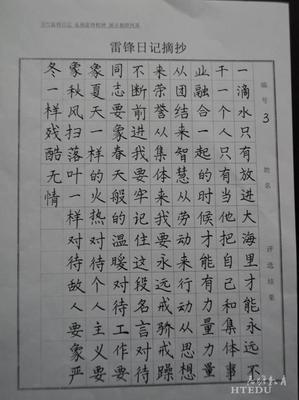 雷锋日记摘抄
编号 3 姓名 评选结果
一滴水只有放进大海里才能永远不
干一个人只有当他把自己和集体事
业融合一起的时候才能有力量力量
从团结来智慧从劳动来行动从思想
来荣誉从集体来我要永远戒骄戒躁
不断前进我要牢记住这段名言对待
同志要象春天般的温暖对待工作要
象夏天一样的火热对待个人主义要
象秋风扫落叶一样对待敌人要象严
冬一样残酷无情
HTEDU